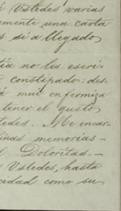 Ustedes varias
mente una carta
si á llegado
tia no les escri-
constipado: des-
á mui enfermiza
tener el gusto
tedes. Me encar-
finas memorias -
Doloritas. -
Ustedes, hasta
edad como su